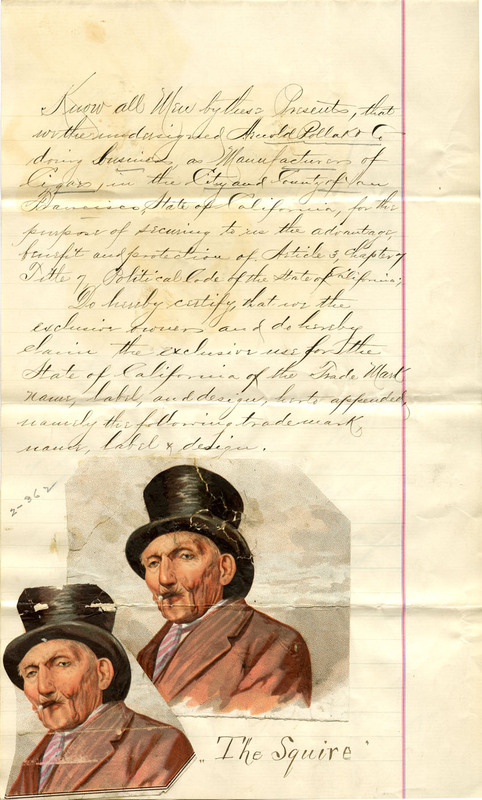 Know all Men by these Presents, that
we the undersigned Arnold Pollak & Co
doing business, as Manufacturers of
Cigars, in the City and County of San
Francisco, State of California, for the
purpose of securing to us the advantage
benefit and protection of Article 3, Chapter 7
Title 7, Political Code of the State of California;
Do hereby certify, that we the
exclusive owners and do hereby
claim the exclusive use for the
State of California of the Trade Mark
name, label, and design, hereto appended,
namely the following trademark,
name, label & design.
2-362
"The Squire"